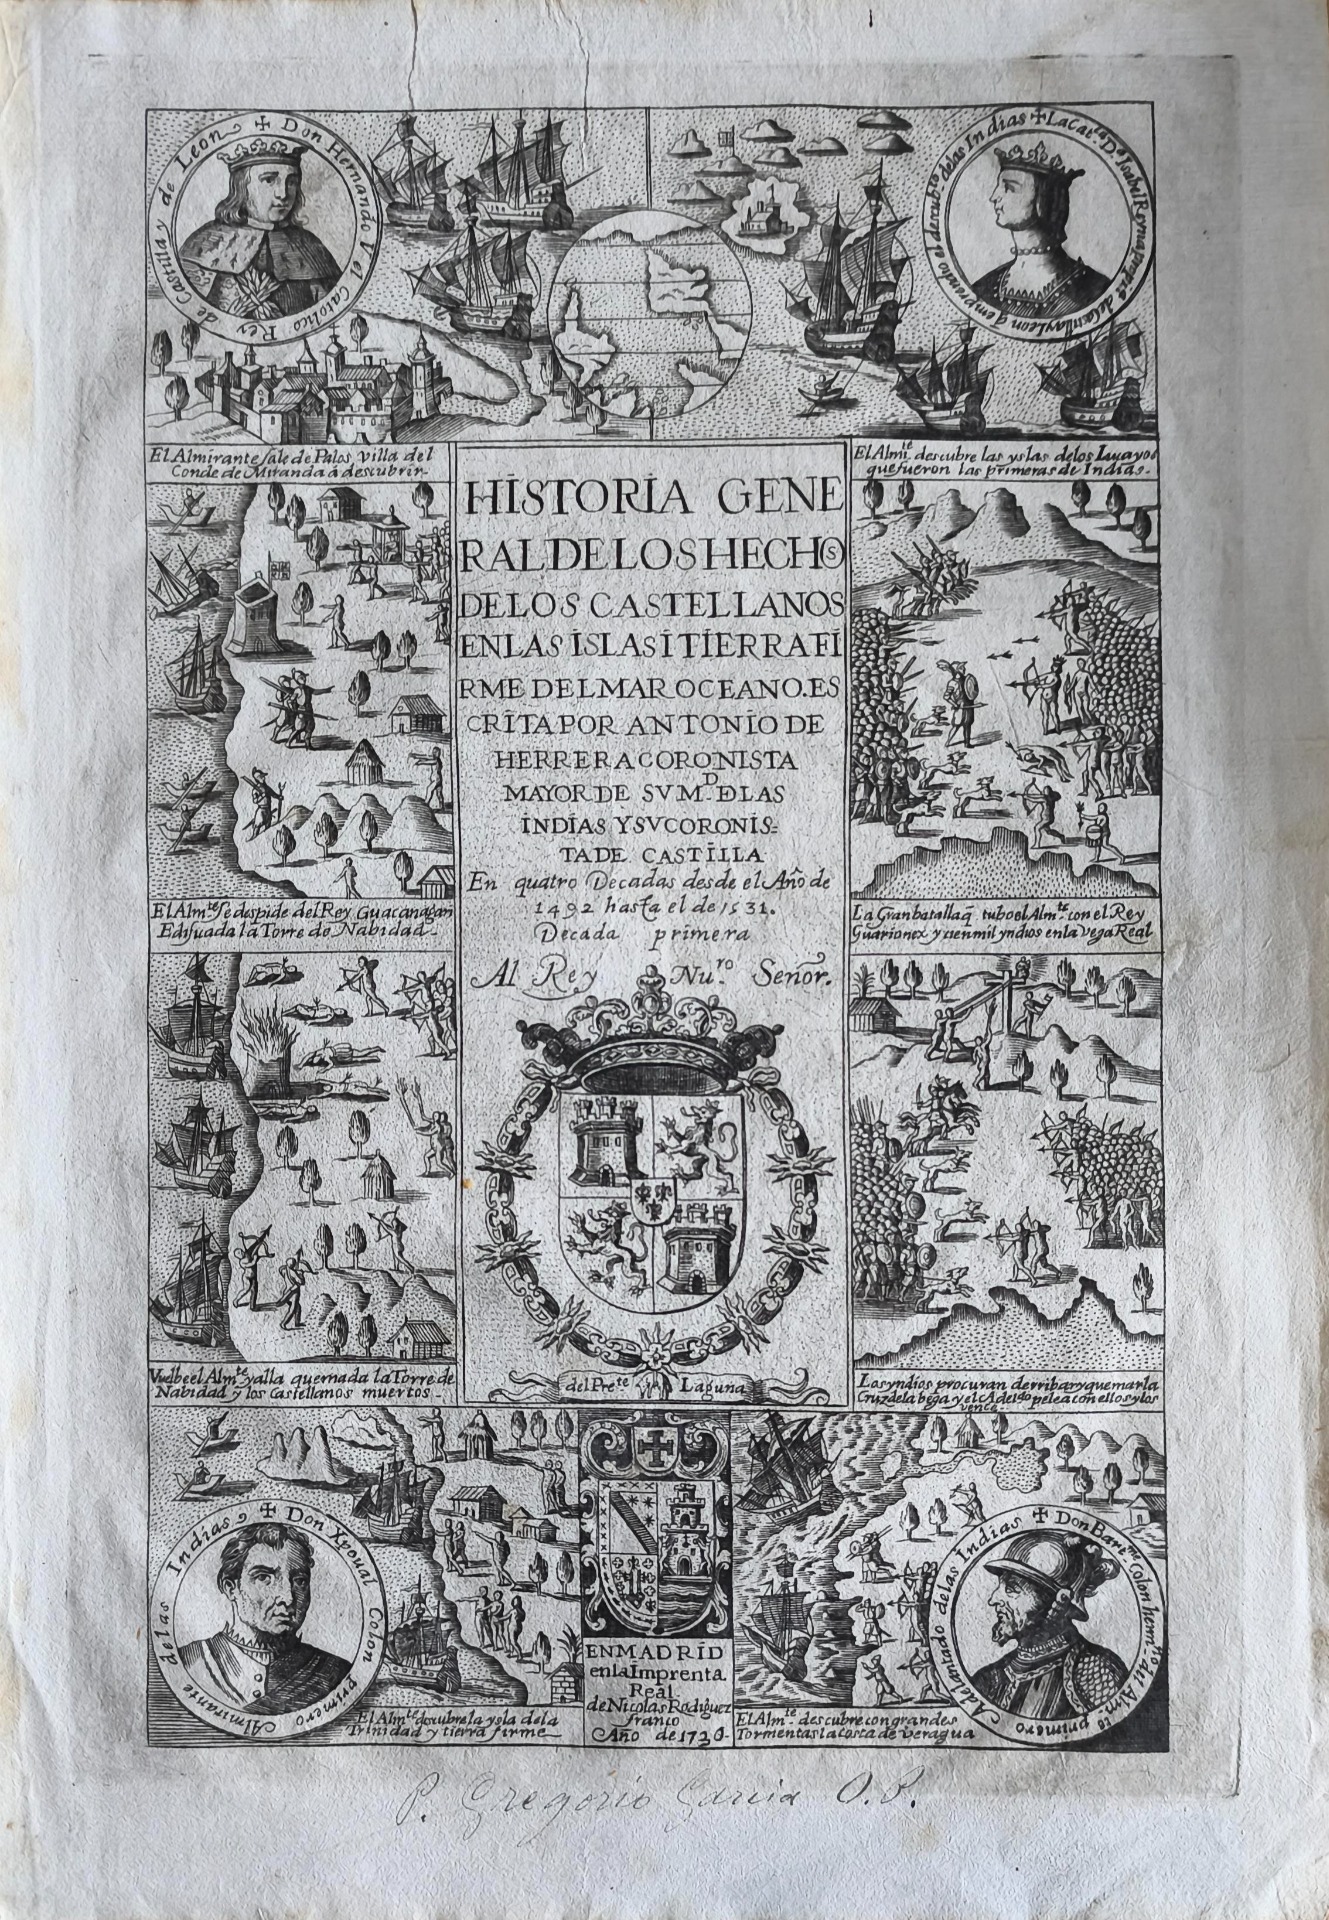 ✠ Don Hernando V el Catolico Rey de Castilla y de Leon
✠ La Cat.ca D.a Isabel Reyna propt.a de Castilla y Leon q emprendio el descub.to de las Indias
El Almirante sale de Palos, villa del
Conde de Miranda à descubrir-
El Almi.te descubre las yslas delos Lucayos
que fueron las primeras de Indias.-
HISTORIA GENE
RAL DE LOS HECHOS
DE LOS CASTELLANOS
EN LAS ISLAS I TIERRA FI
RME DEL MAR OCEANO. ES
CRITA POR ANTONIO DE
HERRERA CORONISTA
MAYOR DE SV M.D DLAS
INDIAS Y SV CORONIS=
TA DE CASTILLA
En quatro Decadas desde el Año de
1492 hasta el de 1531.
Decada primera
Al Rey Nu.ro Señor.
El Alm.te se despide del Rey Guacanagari
Edificada la Torre de Nabidad-
La Gran batalla q̃ tubo el Alm.te con el Rey
Guarionex y cien mil yndios en la Vega Real
Vuelbe el Alm.te y alla quemada la Torre de
Nabidad y los Castellanos muertos-
del Pre.te Laguna
Los yndios procuran derribar y quemar la
Cruz de la bega y el Adel.do pelea con ellos y los
vence-
✠ Don Xpoual Colon primero Almirante delas Indias
✠ Don Bar.me Colon herm.no del Alm.te primero Adelantado delas Indias
El Alm.te descubre la ysla dela
Trinidad y tierra firme-
EN MADRID
en la Imprenta
Real
de Nicolas Rodiguez
franco
Año de 1726-
El Alm.te descubre con grandes
Tormentas la costa de Veragua
P. Gregorio Garcia O.P.